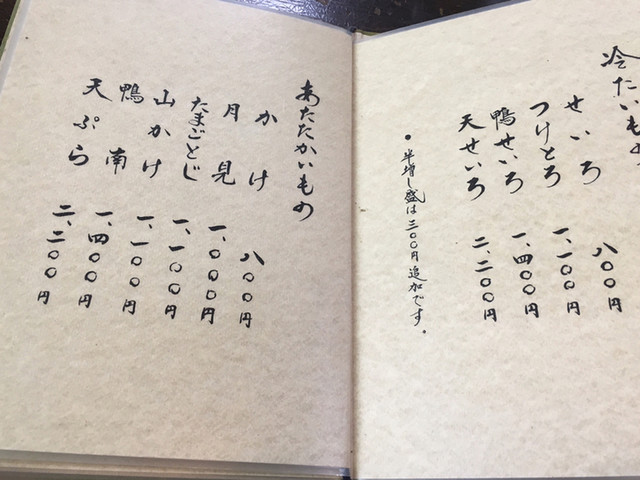 冷たいもの
せいろ 八〇〇円
つけとろ 一、一〇〇円
鴨せいろ 一、四〇〇円
天せいろ 二、二〇〇円
●半増し盛は三〇〇円追加です。
あたたかいもの
かけ 八〇〇円
月見 一、〇〇〇円
たまごとじ 一、一〇〇円
山かけ 一、一〇〇円
鴨南 一、四〇〇円
天ぷら 二、二〇〇円